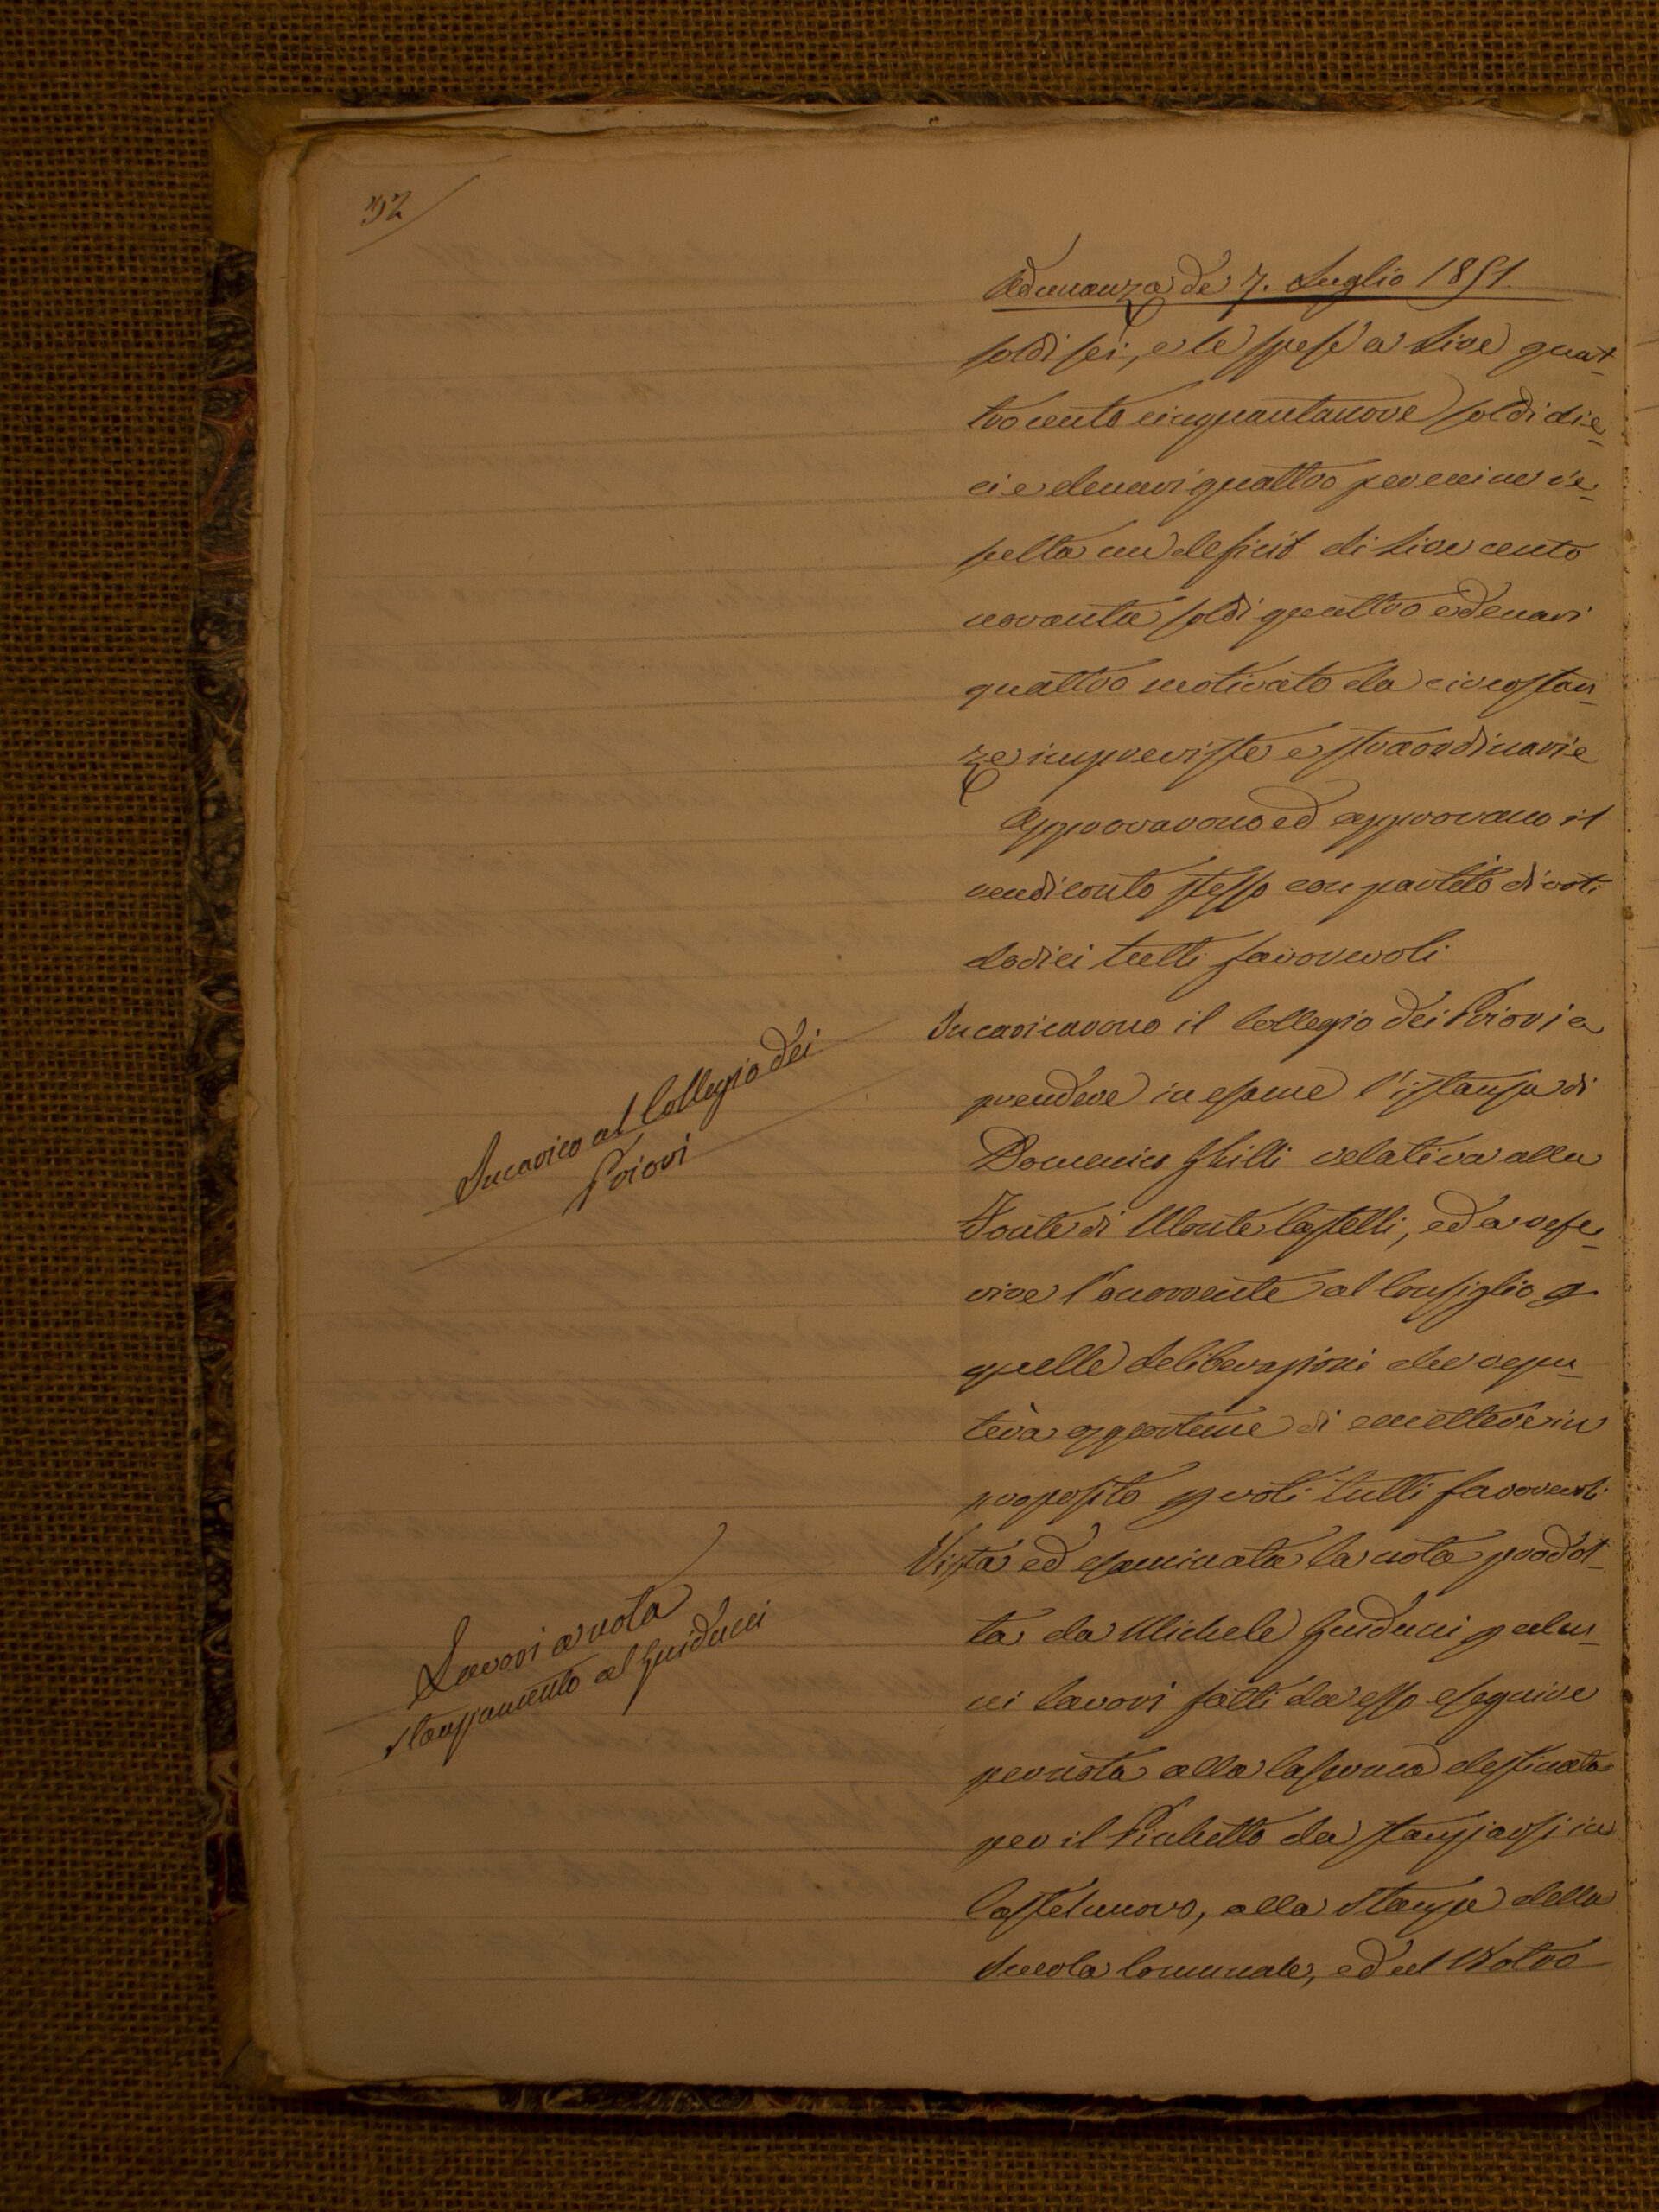 92
Adunanza de' 7. Luglio 1851.
soldi sei, e le spese a Lire quat-
trocento cinquantanove soldi die-
ci e denari quattro per cui ne ri-
sulta un deficit di Lire cento
novanta soldi quattro e denari
quattro motivato da circostan-
ze impreviste e straordinarie
Approvarono ed approvano il
rendiconto stesso con partito di voti
dodici tutti favorevoli
Incarico al Collegio dei
Priori
Incaricarono il Collegio dei Priori a
prendere in esame l'istanza di
Domenico Ghilli relativa alla
Fonte di Monte Castelli, ed a rife-
rire l'occorrente al Consiglio p
quelle deliberazioni che repu-
terà opportune di emettere in
proposito p voti tutti favorevoli
Lavori a nota
Stanziamento al Guiducci
Vista ed esaminata la nota prodot-
ta da Michele Guiducci p alcu-
ni lavori fatti da esso eseguire
per nota alla Caserma destinata
per il Picchetto da stanziarsi in
Castelnuovo, alla Stanza della
Scuola Comunale, ed al